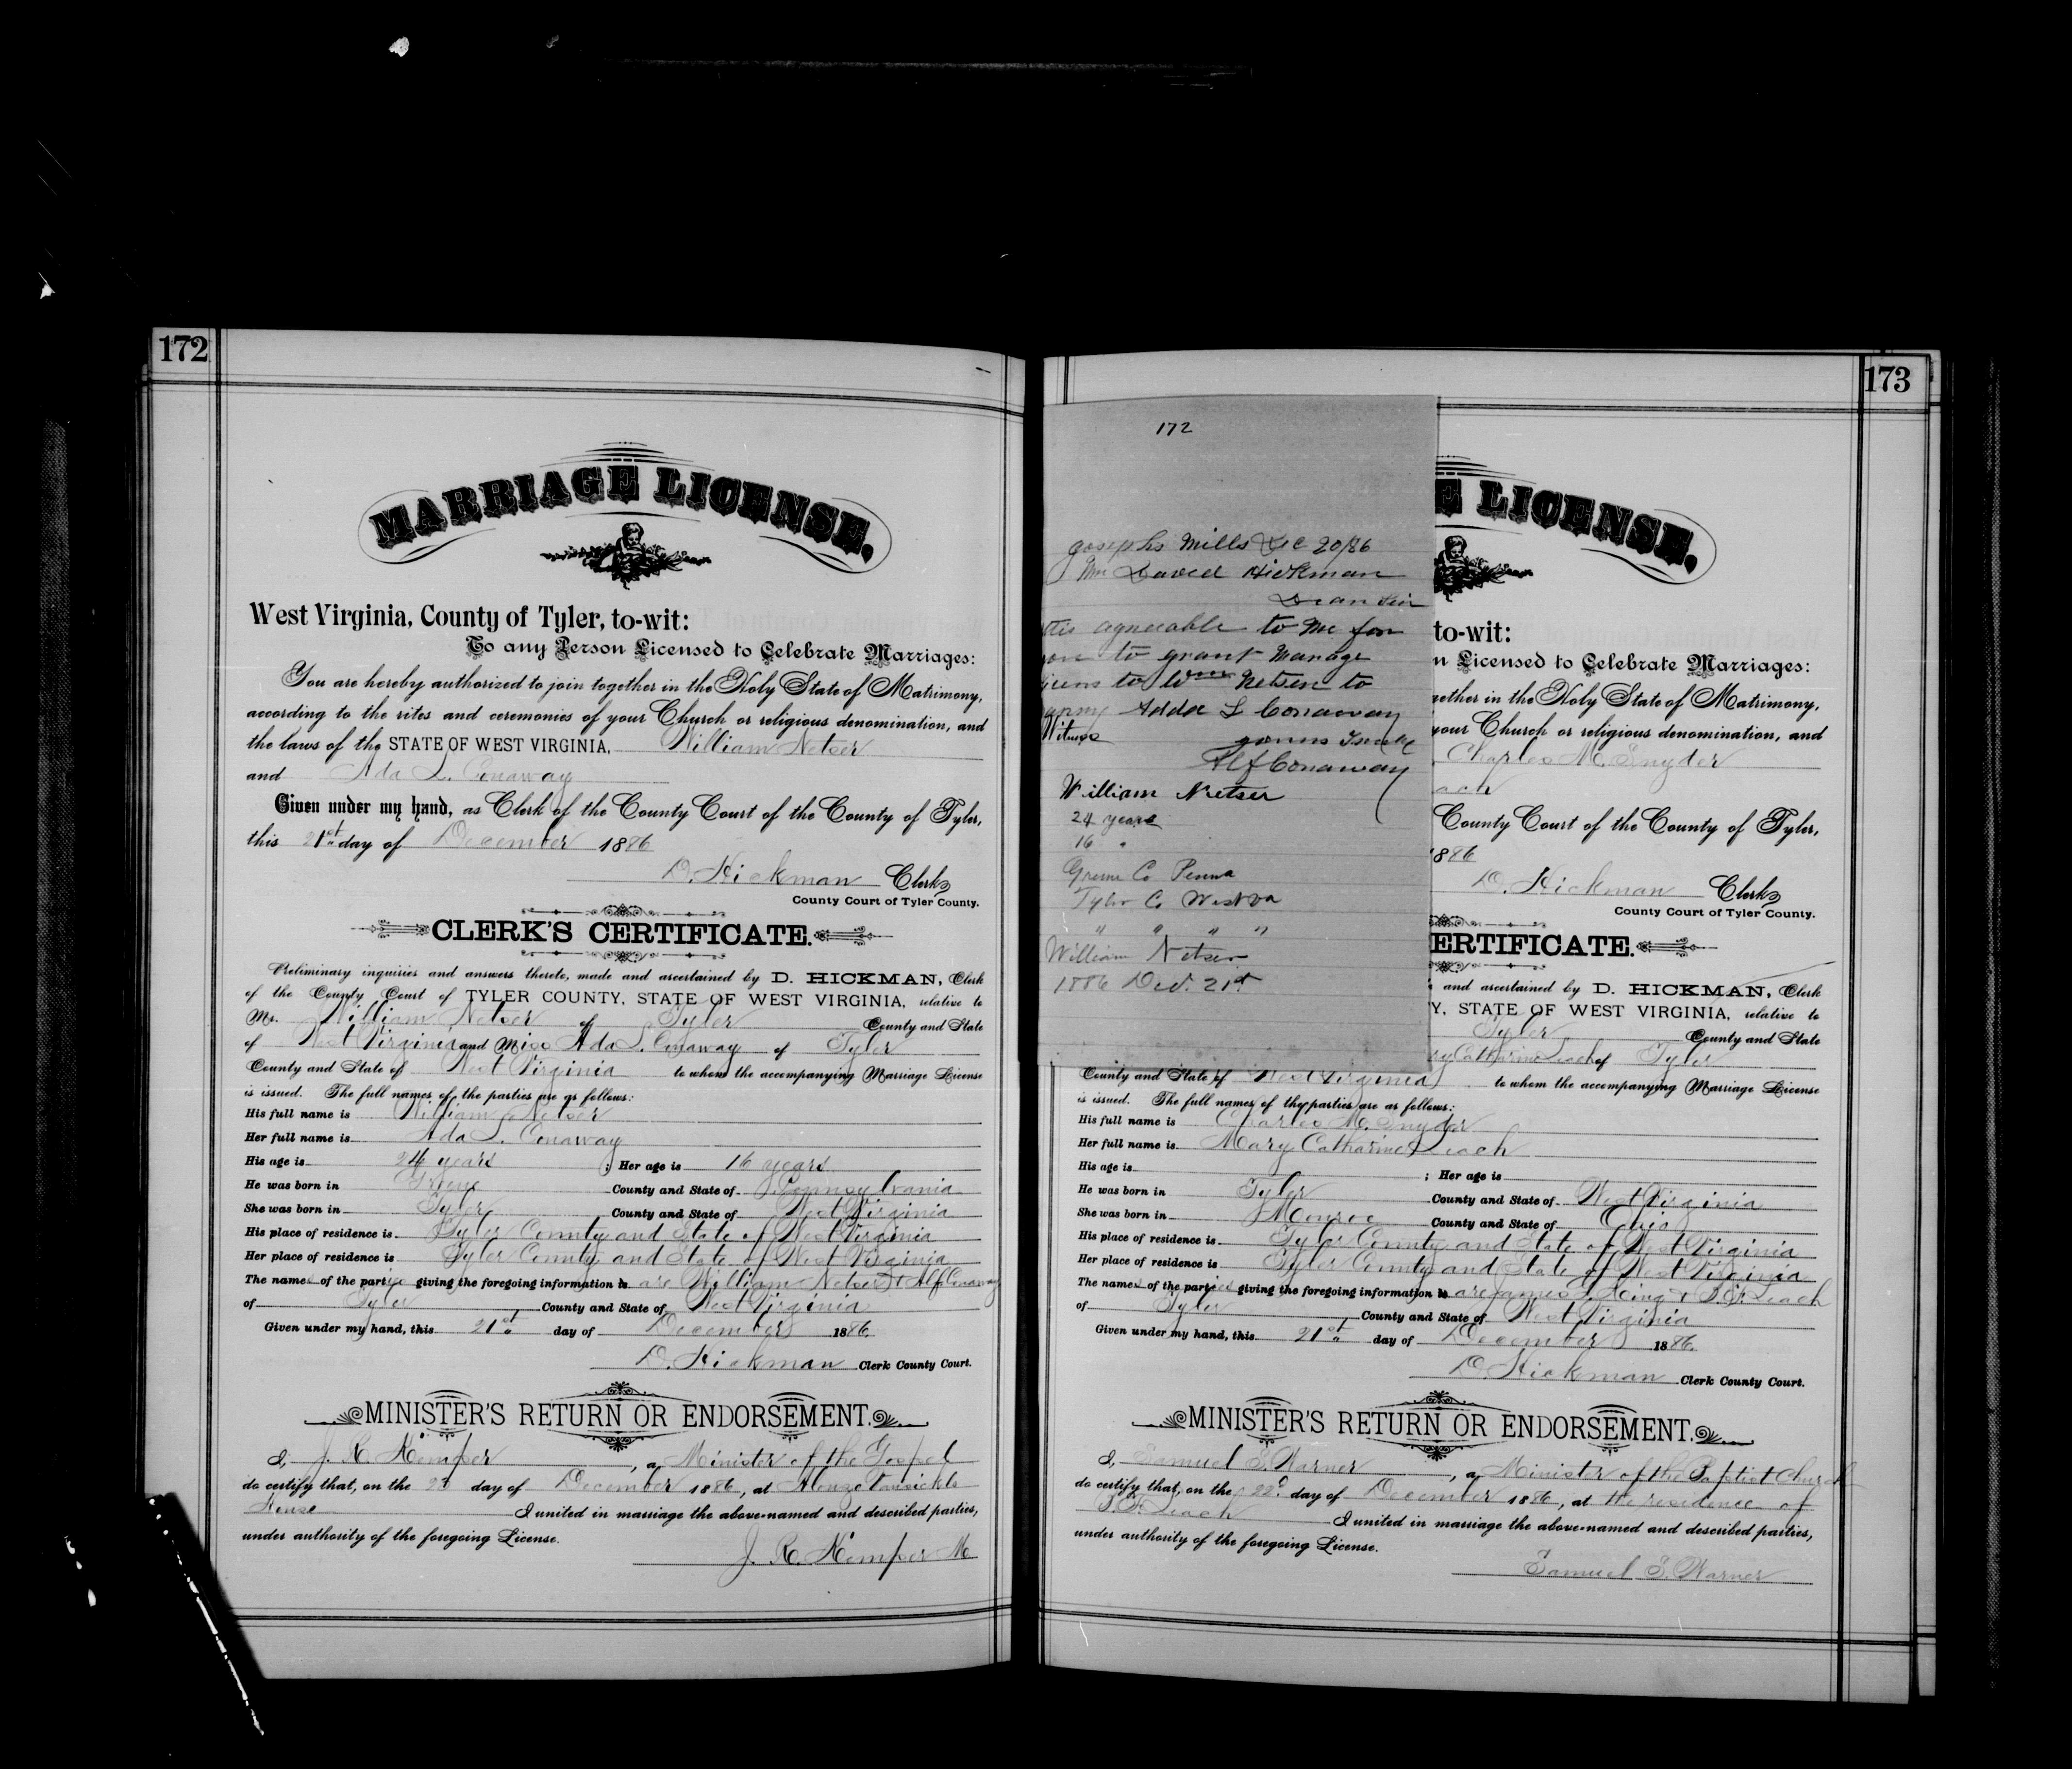 172
MARRIAGE LICENSE.
West Virginia, County of Tyler, to-wit:
To any Person Licensed to Celebrate Marriages:
You are hereby authorized to join together in the Holy State of Matrimony,
according to the rites and ceremonies of your Church or religious denomination, and
the laws of the STATE OF WEST VIRGINIA, William Netser
and Ada L. Conaway
Given under my hand, as Clerk of the County Court of the County of Tyler,
this 21st day of December 1886
D. Hickman Clerk
County Court of Tyler County.
CLERK'S CERTIFICATE.
Preliminary inquiries and answers thereto, made and ascertained by D. HICKMAN, Clerk
of the County Court of TYLER COUNTY, STATE OF WEST VIRGINIA, relative to
Mr. William Netser of Tyler County and State
of West Virginia and Miss Ada L. Conaway of Tyler
County and State of West Virginia to whom the accompanying Marriage License
is issued. The full names of the parties are as follows:
His full name is William Netser
Her full name is Ada L. Conaway
His age is 24 years ; Her age is 16 years
He was born in Greene County and State of Pennsylvania
She was born in Tyler County and State of West Virginia
His place of residence is Tyler County and State of West Virginia
Her place of residence is Tyler County and State of West Virginia
The names of the parties giving the foregoing information is are William Netser & Alf Conaway
of Tyler County and State of West Virginia
Given under my hand, this 21st day of December 1886
D. Hickman Clerk County Court.
MINISTER'S RETURN OR ENDORSEMENT.
I, J. R. Kemper, a Minister of the Gospel
do certify that, on the day of December 1886, at
House I united in marriage the above-named and described parties,
under authority of the foregoing License.
J. R. Kemper M
172
Josephs Mills Dec 20/86
Mr David Hickman
Dear Sir
agreeable to Me for
to grant Marage
to Wm Netser to
Adda L Conaway
Witness yours
Alf Conaway
William Netser
24 years
16 "
Greene Co Penna
Tyler Co West Va
" " " "
William Netser
1886 Dec. 21st
173
E LICENSE.
to-wit:
n Licensed to Celebrate Marriages:
gether in the Holy State of Matrimony,
your Church or religious denomination, and
Charles M. Snyder
each
County Court of the County of Tyler,
1886
D. Hickman Clerk
County Court of Tyler County.
ERTIFICATE.
and ascertained by D. HICKMAN, Clerk
Y, STATE OF WEST VIRGINIA, relative to
Tyler County and State
ry Catharine Leach of Tyler
County and State of West Virginia to whom the accompanying Marriage License
is issued. The full names of the parties are as follows:
His full name is Charles M. Snyder
Her full name is Mary Catharine Leach
His age is ; Her age is
He was born in Tyler County and State of West Virginia
She was born in Monroe County and State of Ohio
His place of residence is Tyler County and State of West Virginia
Her place of residence is Tyler County and State of West Virginia
The names of the parties giving the foregoing information is are James King & Leach
of Tyler County and State of West Virginia
Given under my hand, this 21st day of December 1886
D. Hickman Clerk County Court.
MINISTER'S RETURN OR ENDORSEMENT.
I, Samuel S. Warner, a Minister of the Baptist Church
do certify that, on the 22d day of December 1886, at the residence of
Leach I united in marriage the above-named and described parties,
under authority of the foregoing License.
Samuel S. Warner